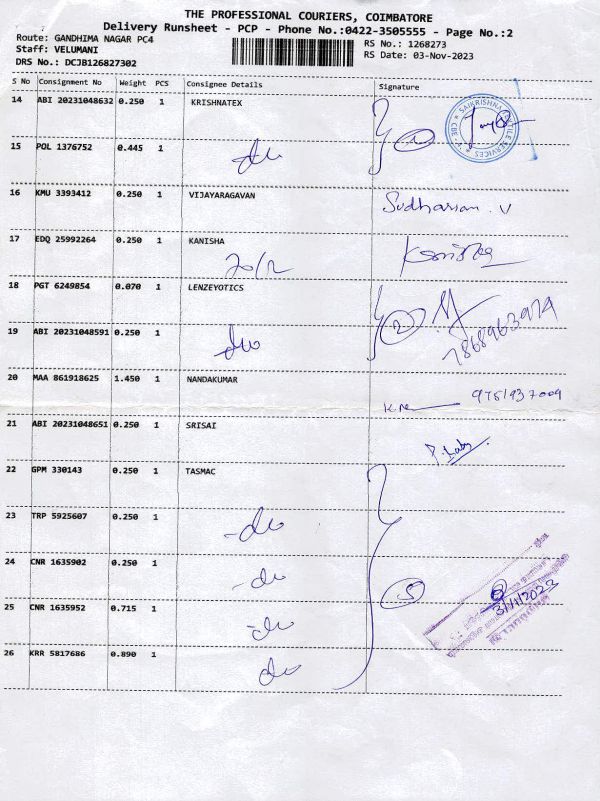 THE PROFESSIONAL COURIERS, COIMBATORE
Delivery Runsheet - PCP - Phone No.:0422-3505555 - Page No.:2
Route: GANDHIMA NAGAR PC4
RS No.: 1268273
Staff: VELUMANI
RS Date: 03-Nov-2023
DRS No.: DCJB126827302
S No Consignment No Weight PCS Consignee Details Signature
14 ABI 20231048632 0.250 1 KRISHNATEX
15 POL 1376752 0.445 1
do
16 KMU 3393412 0.250 1 VIJAYARAGAVAN
Sudharsan. V
17 EDQ 25992264 0.250 1 KANISHA
Kanishka
18 PGT 6249854 0.070 1 LENZEYOTICS
2
7868963979
19 ABI 20231048591 0.250 1
do
20 MAA 861918625 1.450 1 NANDAKUMAR
9751937009
21 ABI 20231048651 0.250 1 SRISAI
22 GPM 330143 0.250 1 TASMAC
23 TRP 5925607 0.250 1
-do
24 CNR 1635902 0.250 1
-do
5
3/11/2023
25 CNR 1635952 0.715 1
-do
26 KRR 5817686 0.890 1
do